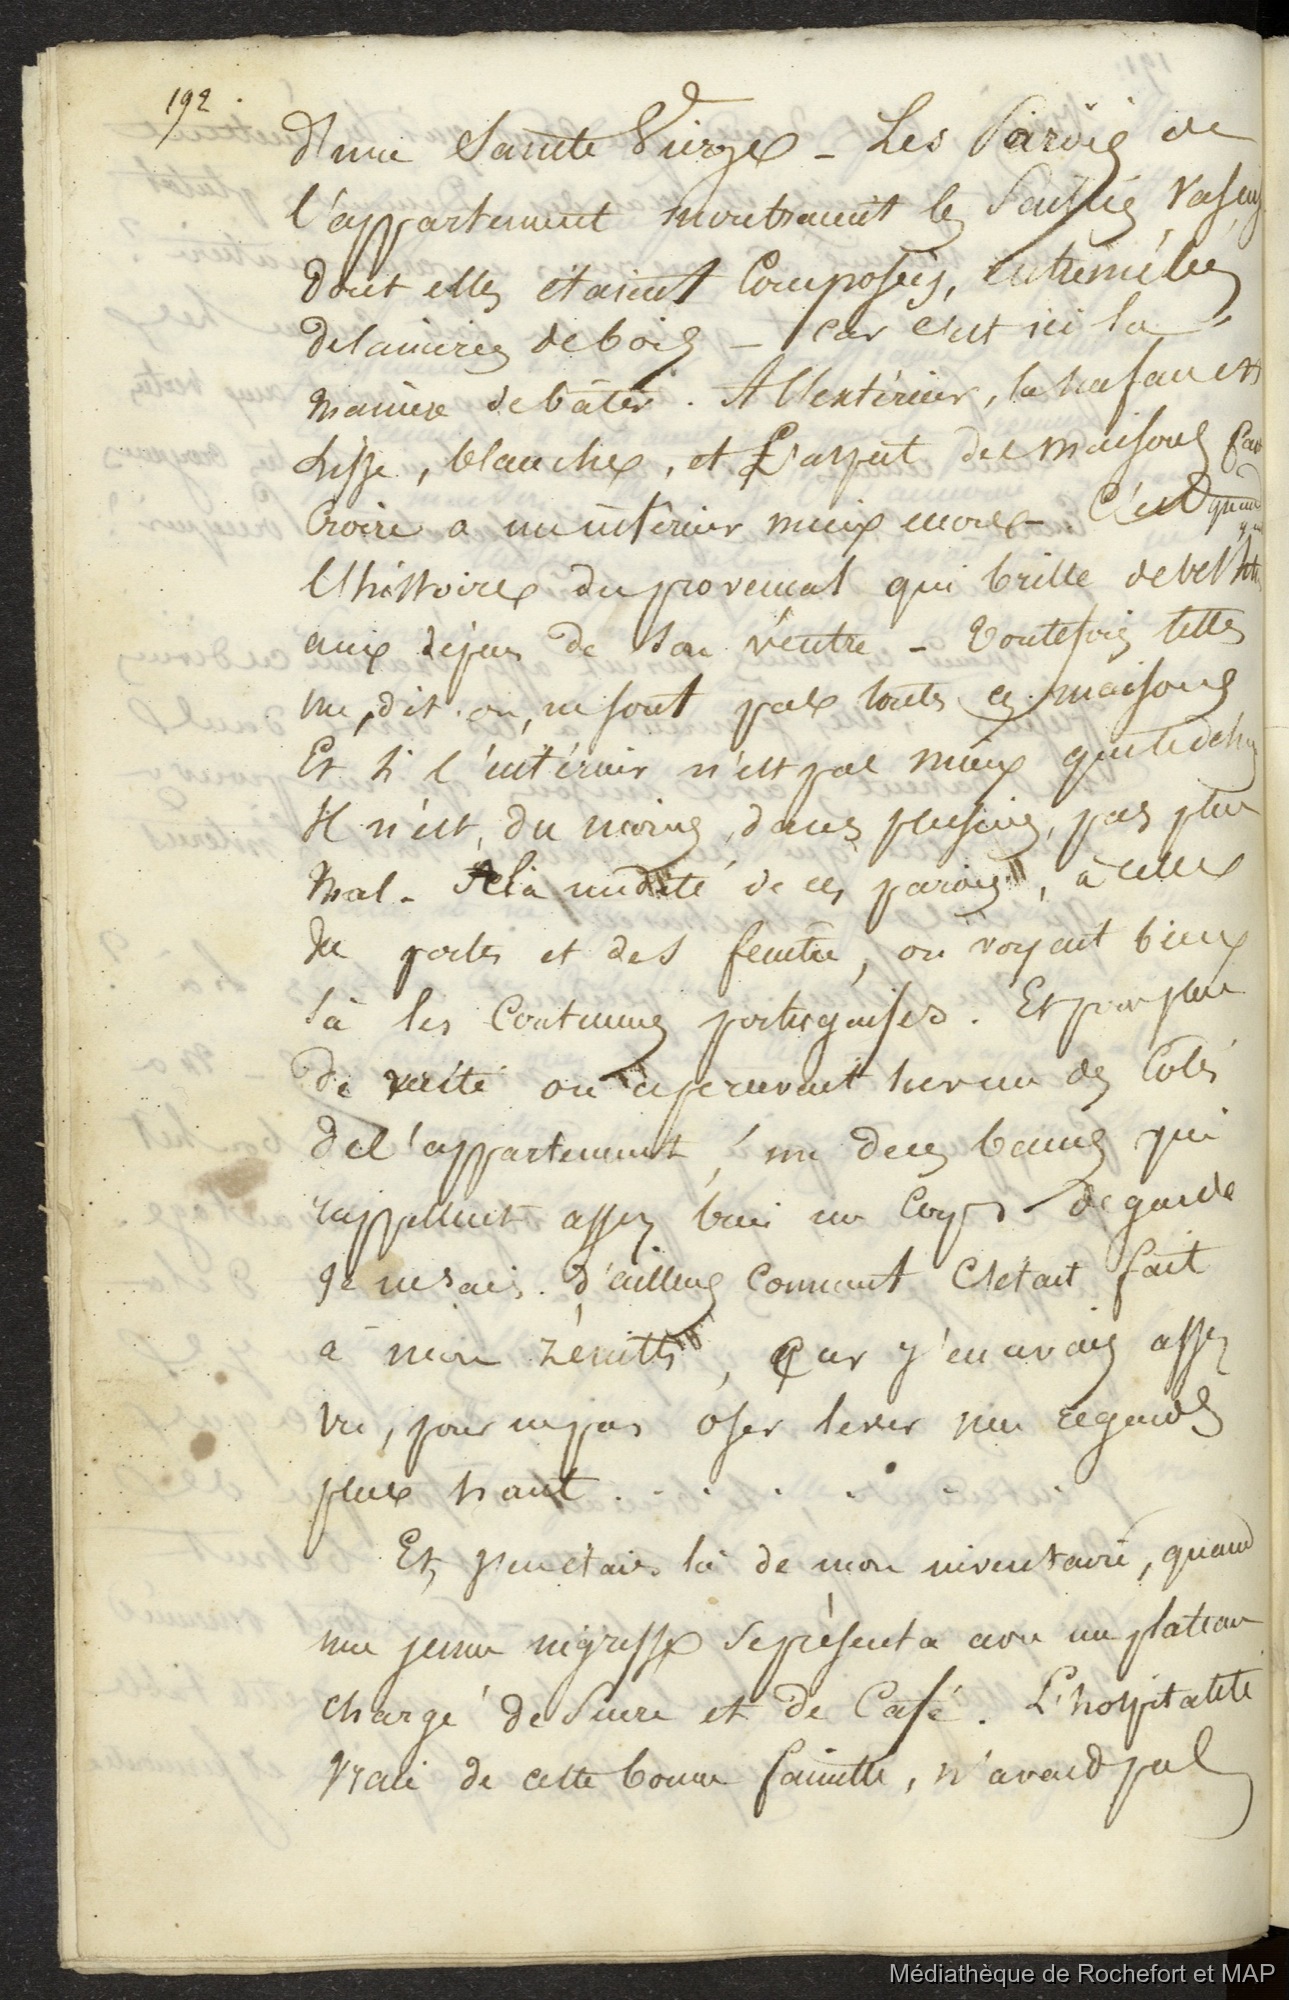 192
d'une Sainte Vierge - Les Parois de
l'appartement montraient les
dont elles étaient Composées, entremêlées
de lanières de bois - car c'est ici la
manière de bâtir. A l'extérieur, la surface est
Lisse, blanche, et l'aspect des maisons fait
Croire a un intérieur mieux encore - C'est
l'histoire du provençal qui brille de bel
aux dépens de son ventre - toutefois telles
ne, dit-on, ne sont pas toutes ces maisons
Et si l'intérieur n'est pas mieux que le dehors
Il n'est, du moins, dans plusieurs, pas plus
mal - A la nudité de ces parois, à celle
des portes et des fenêtres, on voyait bien
là les Coutumes portugaises. Et pour plus
de vérité on apercevait sur un des Côtés
de l'appartement, un de ces bancs qui
rappellent assez bien un Corps de garde
Je ne sais d'ailleurs comment C'était fait
à mon zénith, Car j'en avais assez
vu, pour ne pas oser lever mes regards
plus haut . . . . . . .
Et j'en étais là de mon inventaire, quand
une jeune négresse se présenta avec un plateau
chargé de Sucre et de Café. L'hospitalité
vraie de cette bonne famille, n'avait pas
Médiathèque de Rochefort et MAP